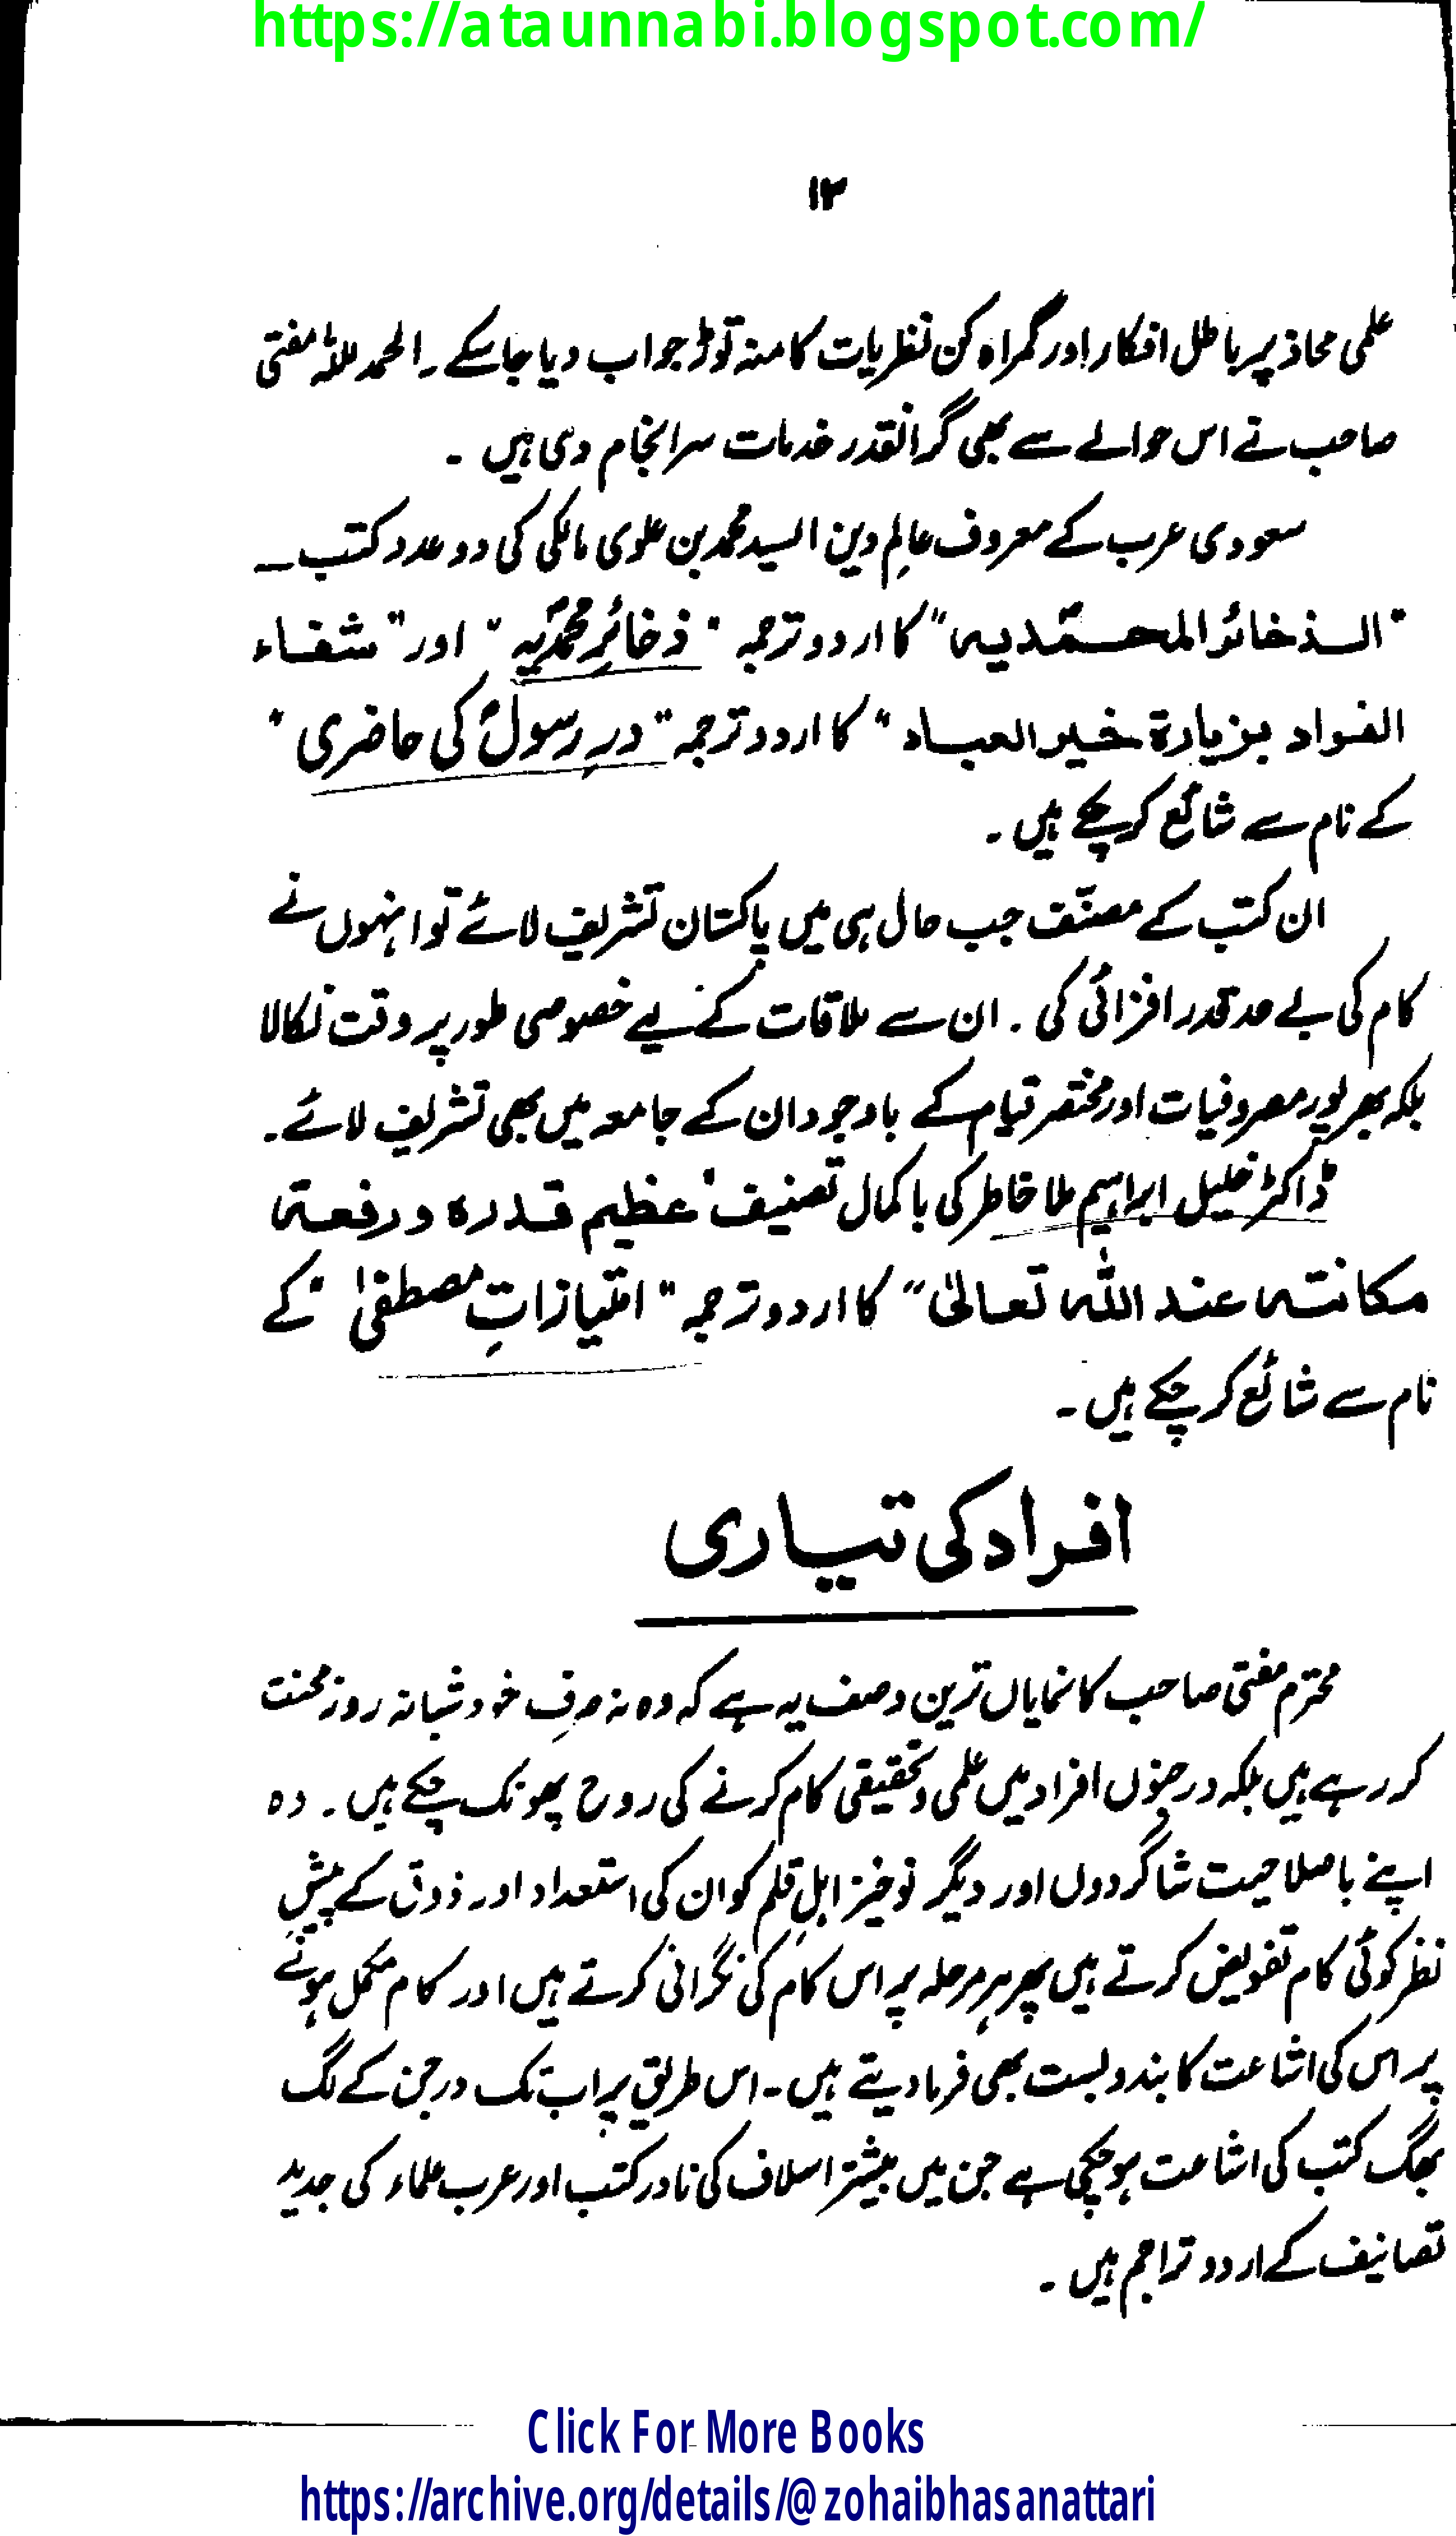 https://ataunnabi.blogspot.com/
۱۲
علمی محاذ پر باطل افکار اور گمراہ کن نظریات کا منہ توڑ جواب دیا جا سکے ۔ الحمد للہ مفتی
صاحب نے اس حوالے سے بھی گرانقدر خدمات سرانجام دی ہیں ۔
سعودی عرب کے معروف عالِم دین السید محمد بن علوی مالکی کی دو عدد کتب ــ
"الذخائر المحمّدیہ" کا اردو ترجمہ "ذخائرِ محمدیہؐ" اور "شفاء
الفواد بزیارة خیر العباد" کا اردو ترجمہ "درِ رسولؐ کی حاضری"
کے نام سے شائع کر چکے ہیں ۔
ان کتب کے مصنّف جب حال ہی میں پاکستان تشریف لائے تو انہوں نے
کام کی بے حد قدر افزائی کی ۔ ان سے ملاقات کے لیے خصوصی طور پر وقت نکالا
بلکہ بھر پور مصروفیات اور مختصر قیام کے باوجود ان کے جامعہ میں بھی تشریف لائے ۔
ڈاکٹر خلیل ابراہیم ملا خاطر کی باکمال تصنیف "عظیم قدرہ و رفعة
مکانتہ عند اللہ تعالیٰ" کا اردو ترجمہ "امتیازاتِ مصطفیٰ" کے
نام سے شائع کر چکے ہیں ۔
افراد کی تیاری
محترم مفتی صاحب کا نمایاں ترین وصف یہ ہے کہ وہ نہ صرف خود شبانہ روز محنت
کر رہے ہیں بلکہ درجنوں افراد میں علمی و تحقیقی کام کرنے کی روح پھونک چکے ہیں ۔ وہ
اپنے باصلاحیت شاگردوں اور دیگر نوخیز اہلِ قلم کو ان کی استعداد اور ذوق کے پیشِ
نظر کوئی کام تفویض کرتے ہیں پھر ہر مرحلہ پر اس کام کی نگرانی کرتے ہیں اور کام مکمل ہونے
پر اس کی اشاعت کا بندوبست بھی فرما دیتے ہیں ۔ اس طریق پر اب تک درجن کے لگ
بھگ کتب کی اشاعت ہو چکی ہے جن میں بیشتر اسلاف کی نادر کتب اور عرب علماء کی جدید
تصانیف کے اردو تراجم ہیں ۔
Click For More Books
https://archive.org/details/@zohaibhasanattari